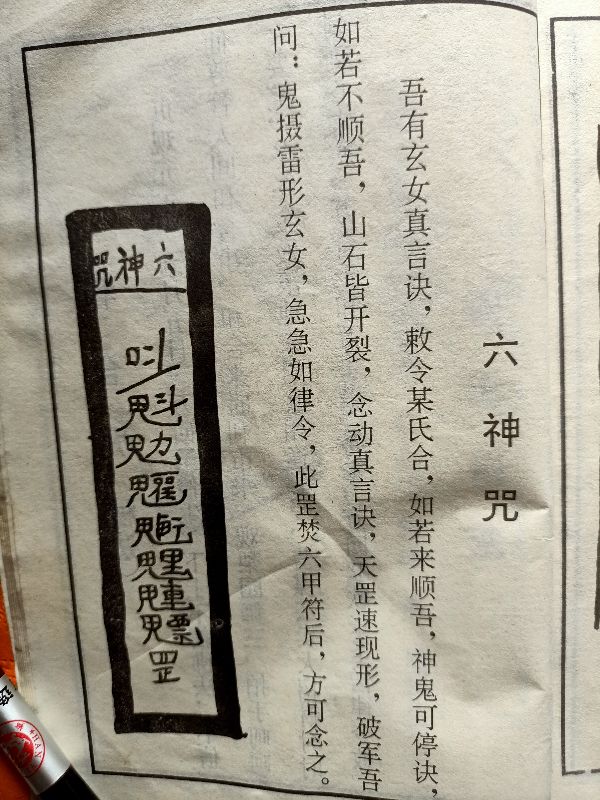 六神咒
吾有玄女真言诀，敕令某氏合，如若来顺吾，神鬼可停诀，
如若不顺吾，山石皆开裂，念动真言诀，天罡速现形，破军吾
问：鬼摄雷形玄女，急急如律令，此罡焚六甲符后，方可念之。
六神咒
魁
罡